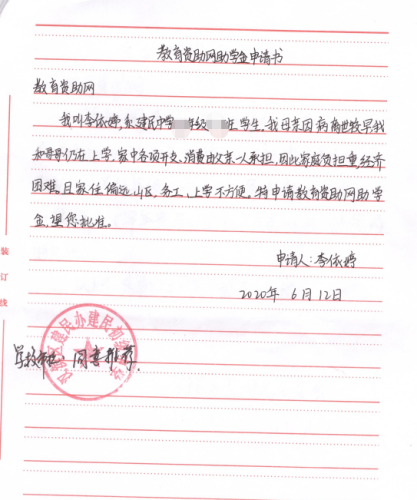 教育资助网助学金申请书
教育资助网
我叫李依婷,系建民中学 年级 班学生,我母亲因病离世较早我
和哥哥仍在上学,家中各项开支、消费由父亲一人承担,因此家庭负担重,经济
困难。且家住偏远山区,务工、上学不方便。特申请教育资助网助学
金,望您批准。
申请人:李依婷
2020年6月12日
装
订
线
区建民办建民初级中学
学校 : 同意推荐.